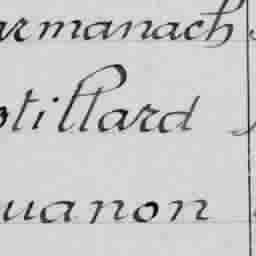 armanach
otillard
uanon